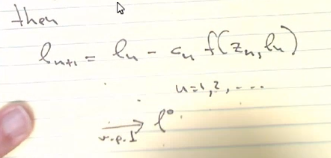 then
lₙ₊₁ = lₙ - cₙ f(zₙ, lₙ)
n=1,2, ...
⟶ l⁰
w.p.1